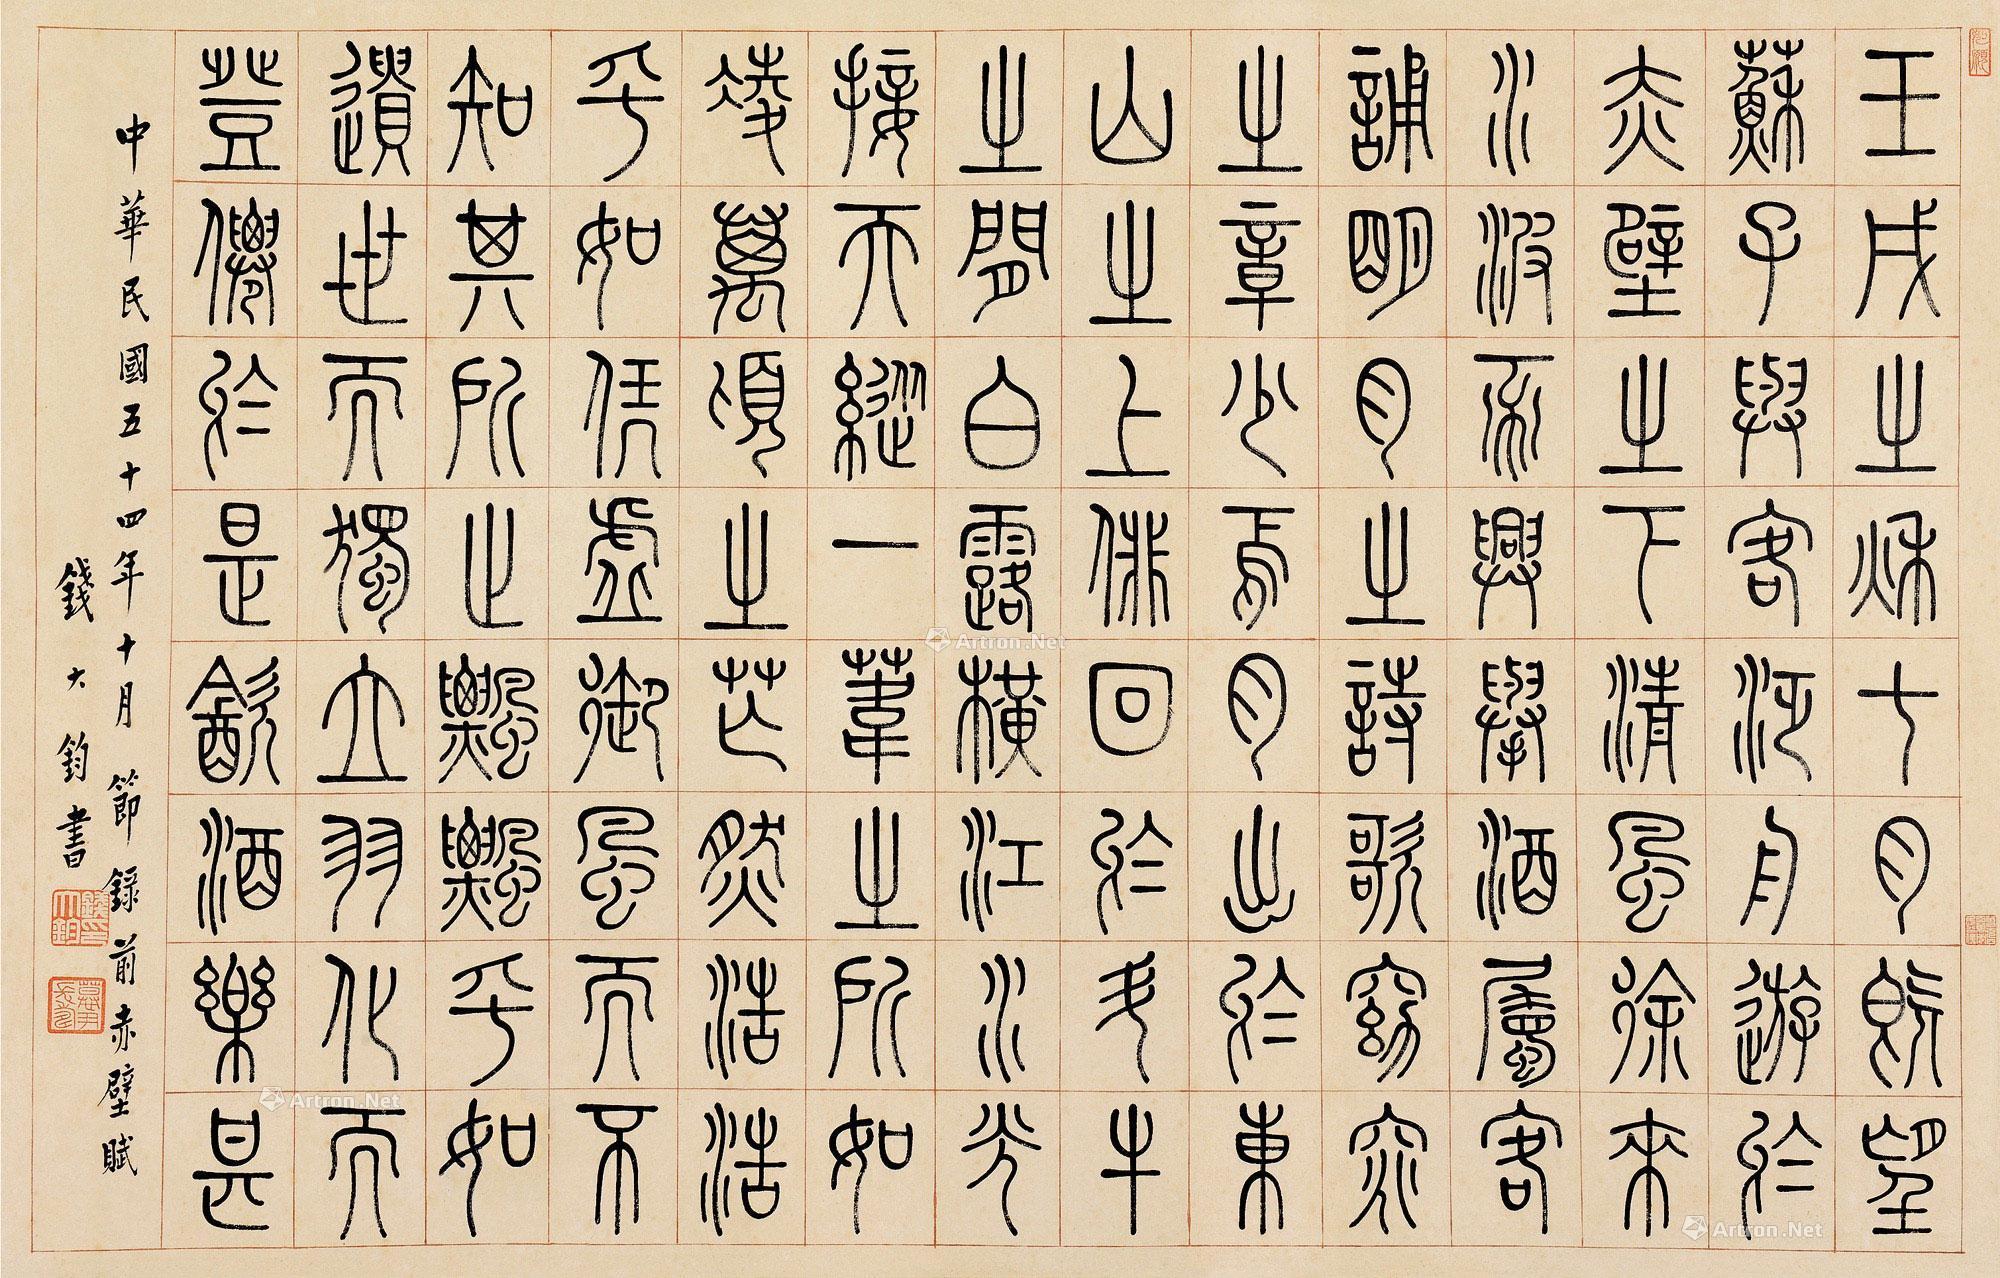 壬戌之秋七月既望
蘇子與客泛舟遊於
赤壁之下清風徐來
水波不興舉酒屬客
誦明月之詩歌窈窕
之章少焉月出於東
山之上俳回於斗牛
之間白露橫江水光
接天縱一葦之所如
凌萬頃之茫然浩浩
乎如凭虛御風而不
知其所止飄飄乎如
遺世而獨立羽化而
登僊於是飲酒樂甚
中華民國五十四年十月節錄前赤壁賦
錢大鈞書
錢大鈞印
Artron.Net
Artron.Net
Artron.Net